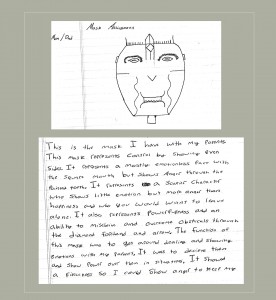 Mask Assignment
Mom / Dad
This is the mask I have with my parents.
This mask represents Control by showing Even
Sides. It represents a mostly emotionless face with
the Square mouth but shows Anger through the
Pointed teeth. It represents a Scarier Character
who shows little emotion but more anger than
happiness and who you would want to leave
alone. It also represents Powerfulness and an
ability to and overcome obstacles through
the diamond forehead and arrows. The function of
this mask was to get around dealing and showing
emotions with my parents. It was to them
and show Power over them in situations. It showed
a so I could show anger to keep my